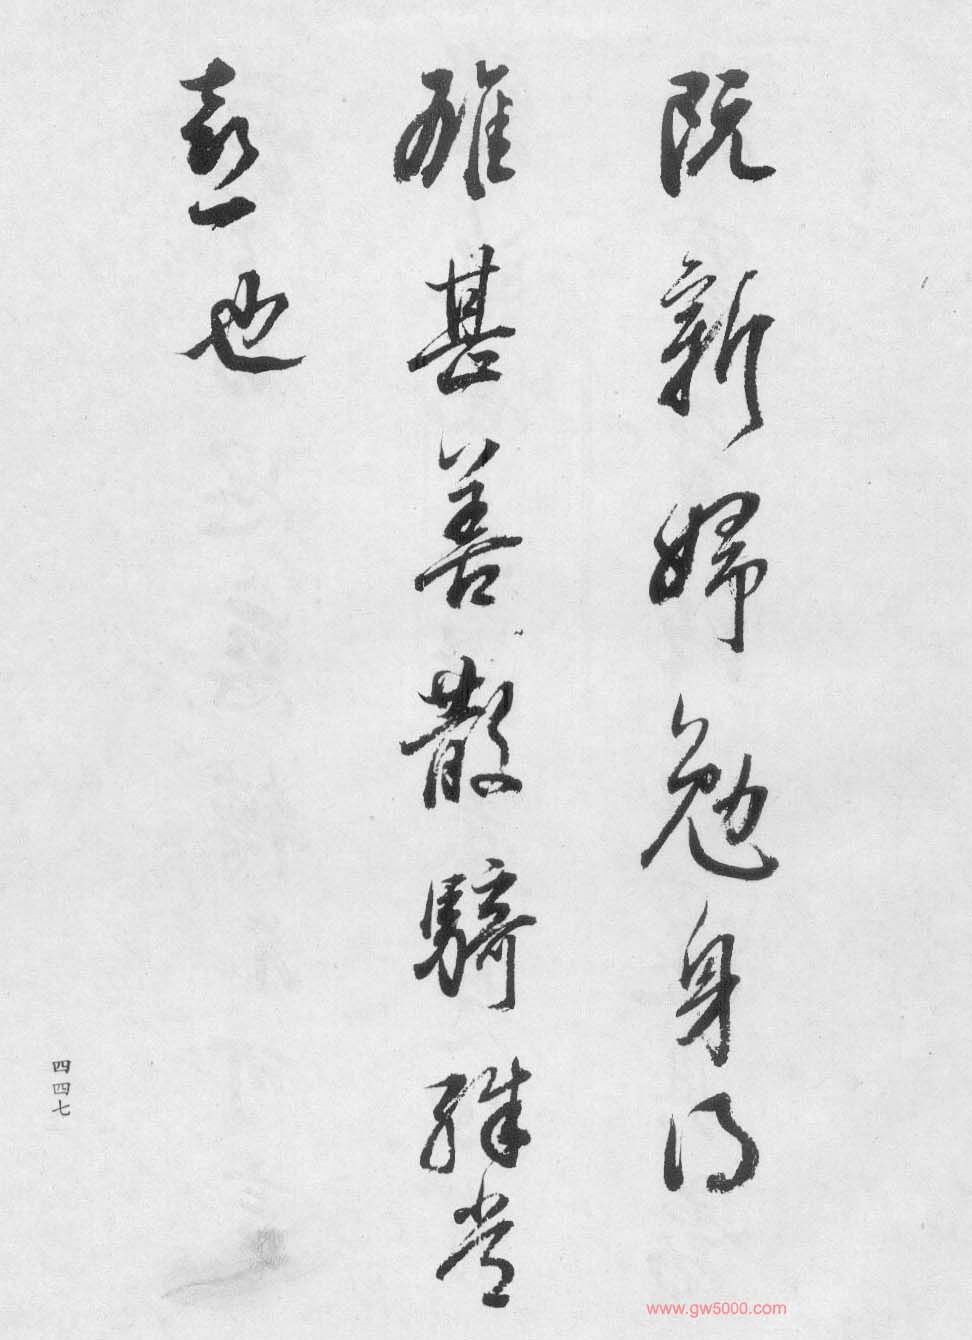 阮新婦勉身得
雄甚善散騎殊當
憙也
四四七
www.gw5000.com